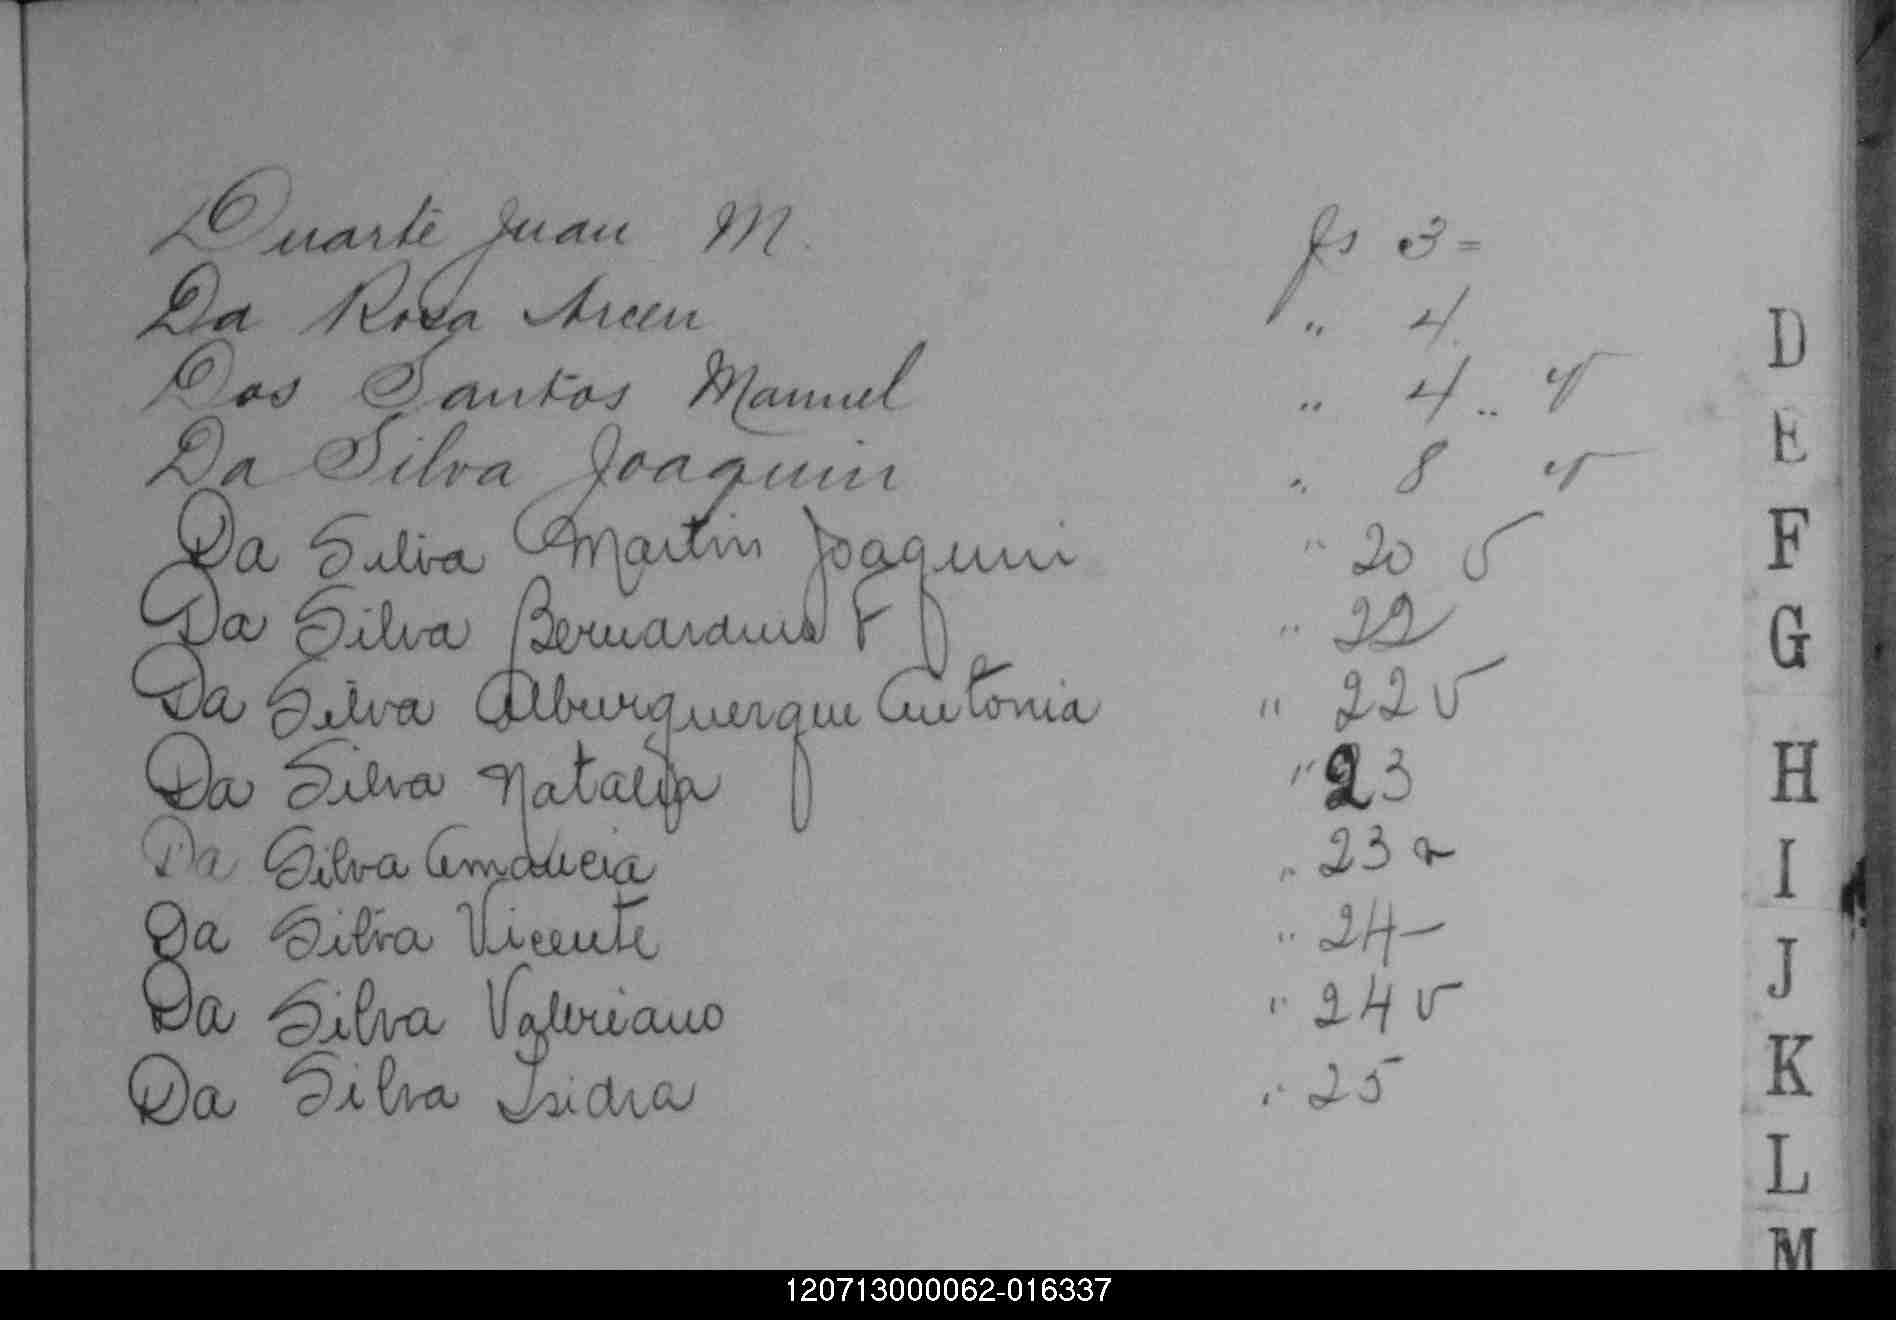 Duarte Juan M. fs 3 =
Da Rosa Arceu " 4.
Dos Santos Manuel " 4 " v
Da Silva Joaquin " 8 v
Da Silva Martin Joaquin " 20 v
Da Silva Bernardino F " 22
Da Silva Alburquerque Antonia " 22 v
Da Silva Natalia " 23
Da Silva Amancia " 23 v
Da Silva Vicente " 24 -
Da Silva Valeriano " 24 v
Da Silva Isidra " 25
D
E
F
G
H
I
J
K
L
M
120713000062-016337